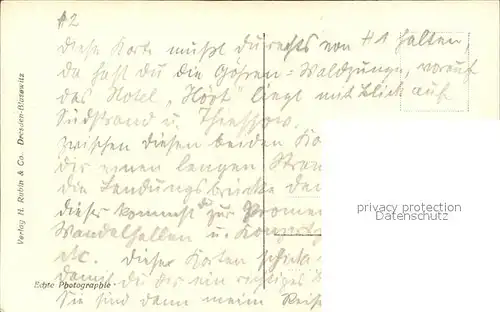 #2
diese Karte mußt du rechts von #1 halten,
da hast du die Göhren-Waldzunge, worauf
das Hotel „Hört" liegt mit Blick auf
Südstrand u. Thiessow.
zwischen diesen beiden
dir einen langen
die Landungsbrücke
dieser kommst du zur
Wandelhallen u.
etc. Dieser Karten
damit du dir ein richtiges
Sie sind dann mein Reise
Verlag H. Rubin & Co. Dresden-Blasewitz
Echte Photographie
privacy protection
Datenschutz